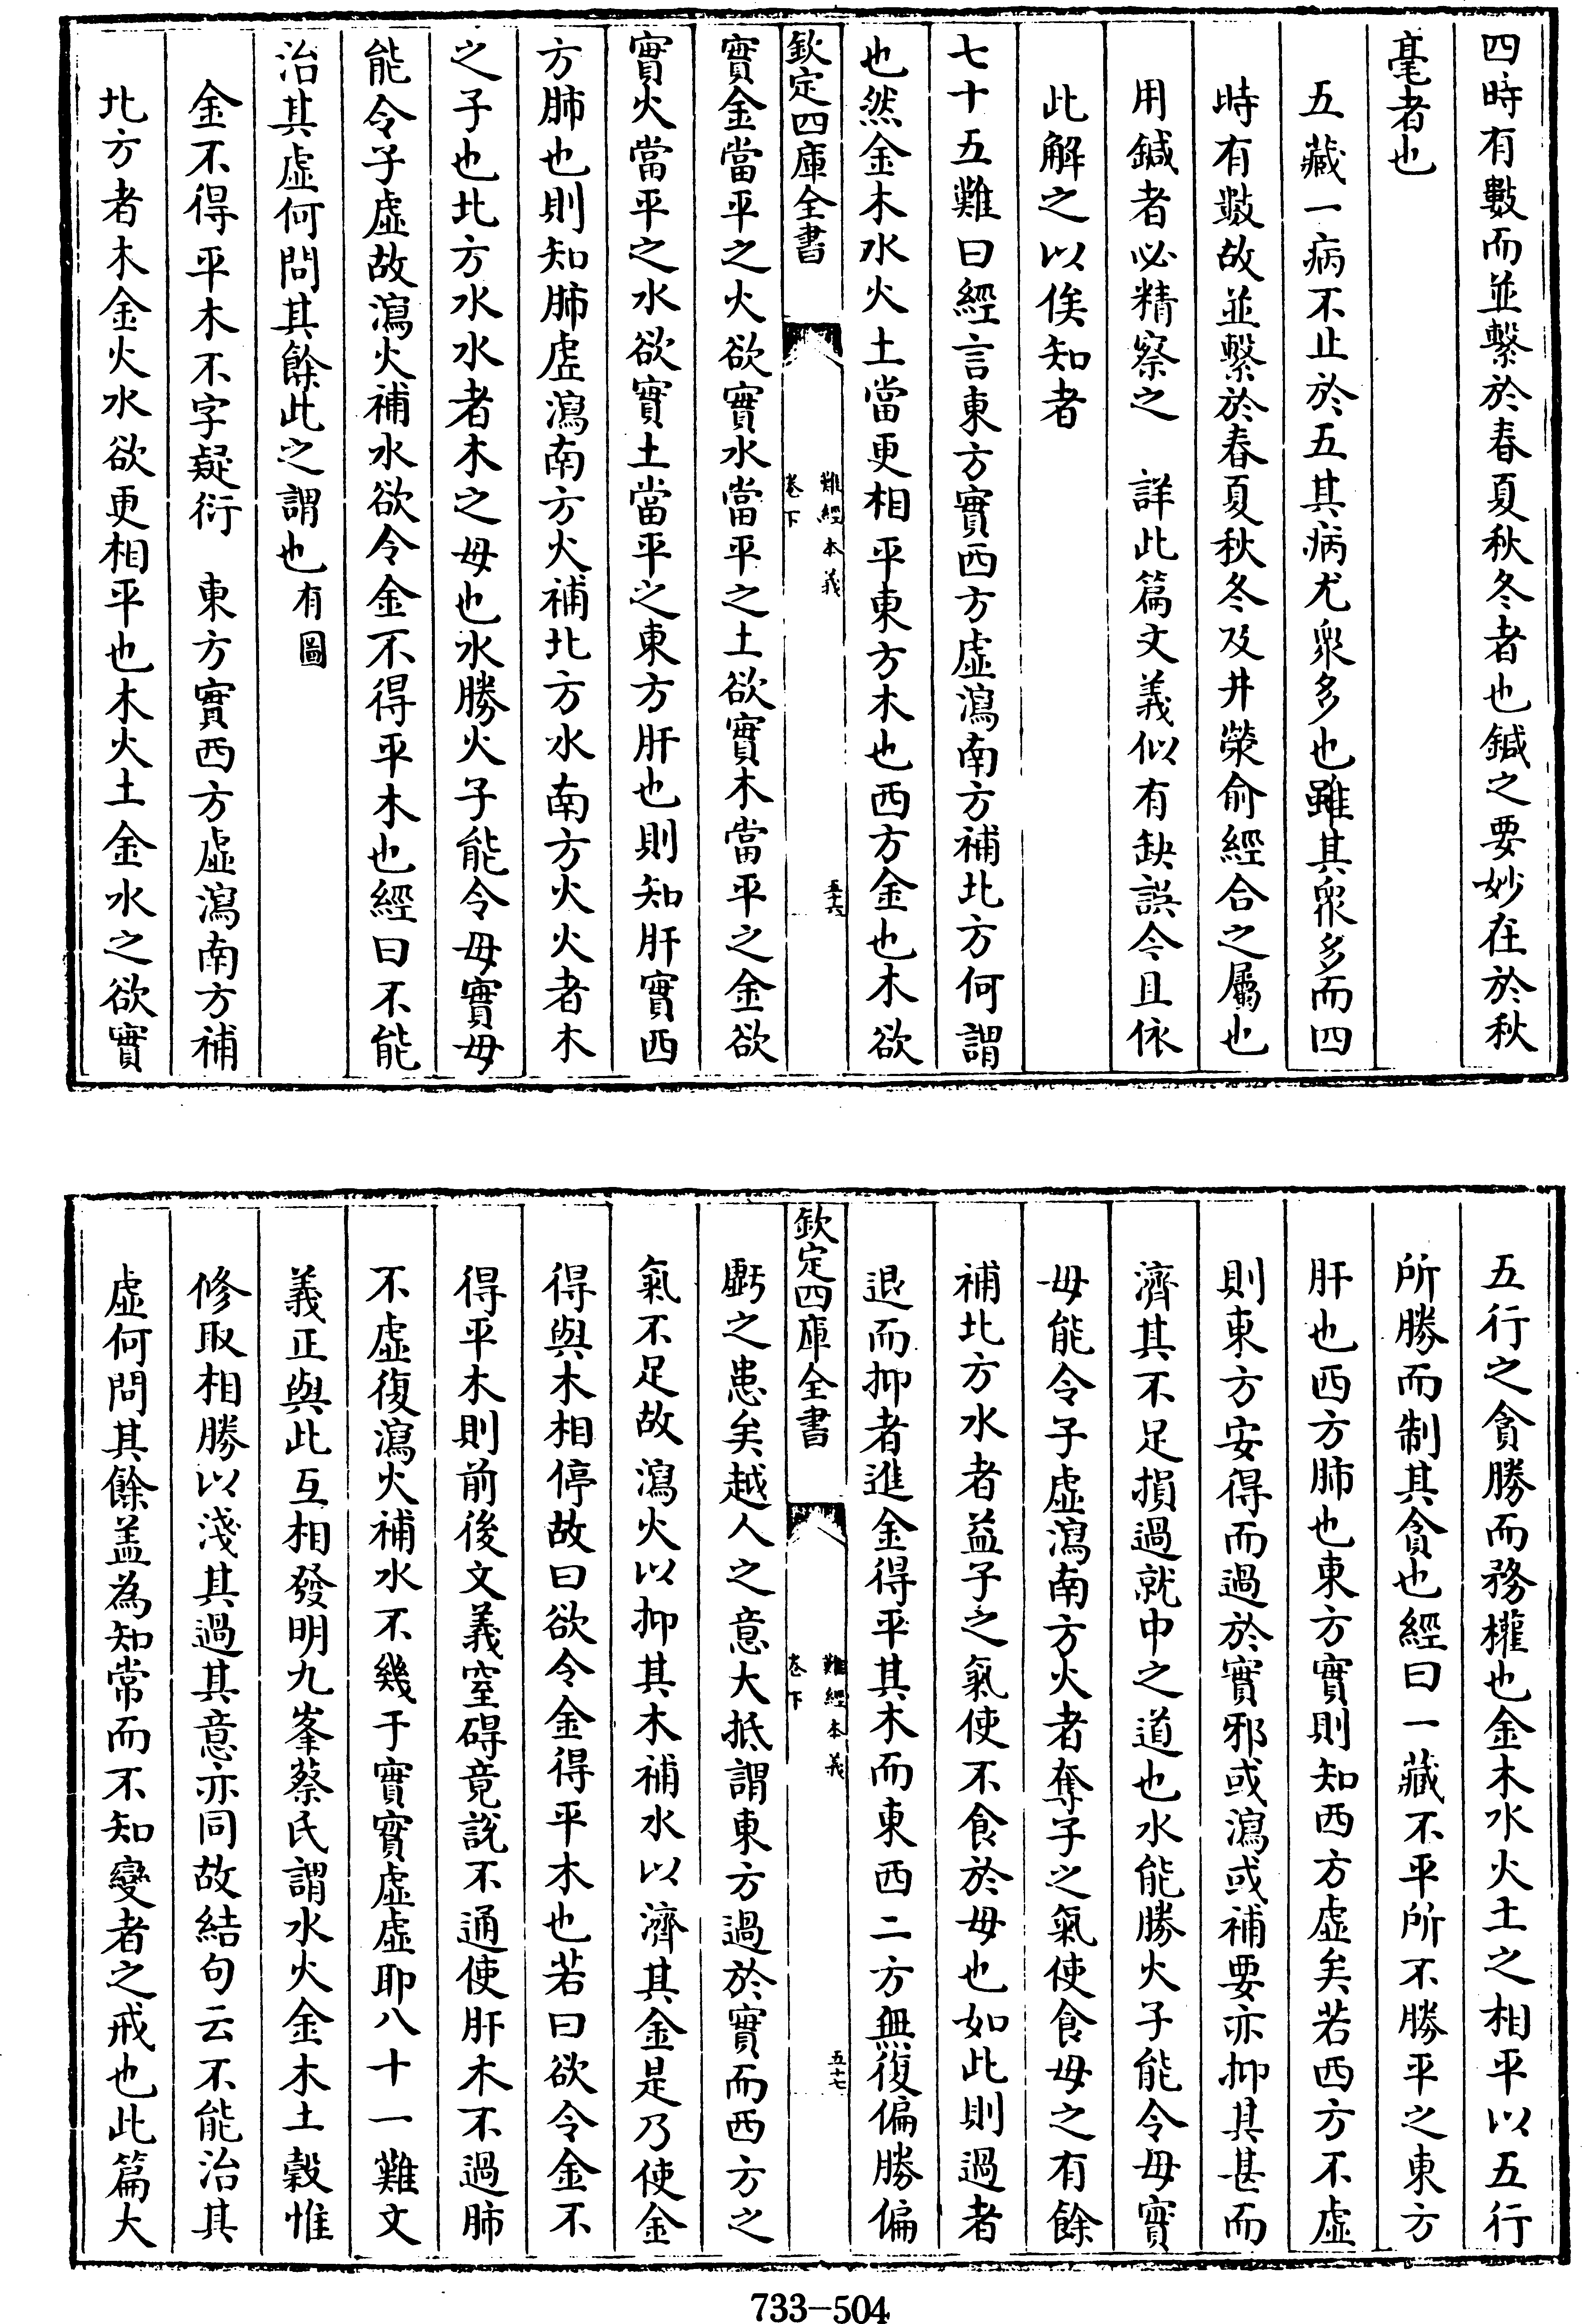 四時有數而並繫於春夏秋冬者也鍼之要妙在於秋
毫者也
五藏一病不止於五其病尤衆多也雖其衆多而四
時有數故並繫於春夏秋冬及井滎俞經合之屬也
用鍼者必精察之　詳此篇文義似有缺誤今且依
此解之以俟知者
七十五難曰經言東方實西方虛瀉南方補北方何謂
也然金木水火土當更相平東方木也西方金也木欲
欽定四庫全書
難經本義
卷下
五十六
實金當平之火欲實水當平之土欲實木當平之金欲
實火當平之水欲實土當平之東方肝也則知肝實西
方肺也則知肺虛瀉南方火補北方水南方火火者木
之子也北方水水者木之母也水勝火子能令母實母
能令子虛故瀉火補水欲令金不得平木也經曰不能
治其虛何問其餘此之謂也有圖
金不得平木不字疑衍　東方實西方虛瀉南方補
北方者木金火水欲更相平也木火土金水之欲實
五行之貪勝而務權也金木水火土之相平以五行
所勝而制其貪也經曰一藏不平所不勝平之東方
肝也西方肺也東方實則知西方虛矣若西方不虛
則東方安得而過於實邪或瀉或補要亦抑其甚而
濟其不足損過就中之道也水能勝火子能令母實
母能令子虛瀉南方火者奪子之氣使食母之有餘
補北方水者益子之氣使不食於母也如此則過者
退而抑者進金得平其木而東西二方無復偏勝偏
欽定四庫全書
難經本義
卷下
五十七
虧之患矣越人之意大抵謂東方過於實而西方之
氣不足故瀉火以抑其木補水以濟其金是乃使金
得與木相停故曰欲令金得平木也若曰欲令金不
得平木則前後文義窒碍竟說不通使肝木不過肺
不虛復瀉火補水不幾于實實虛虛耶八十一難文
義正與此互相發明九峯蔡氏謂水火金木土穀惟
修取相勝以淺其過其意亦同故結句云不能治其
虛何問其餘盖為知常而不知變者之戒也此篇大
733-504